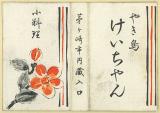 やき鳥
けいちゃん
茅ヶ崎市円蔵入口
小料理